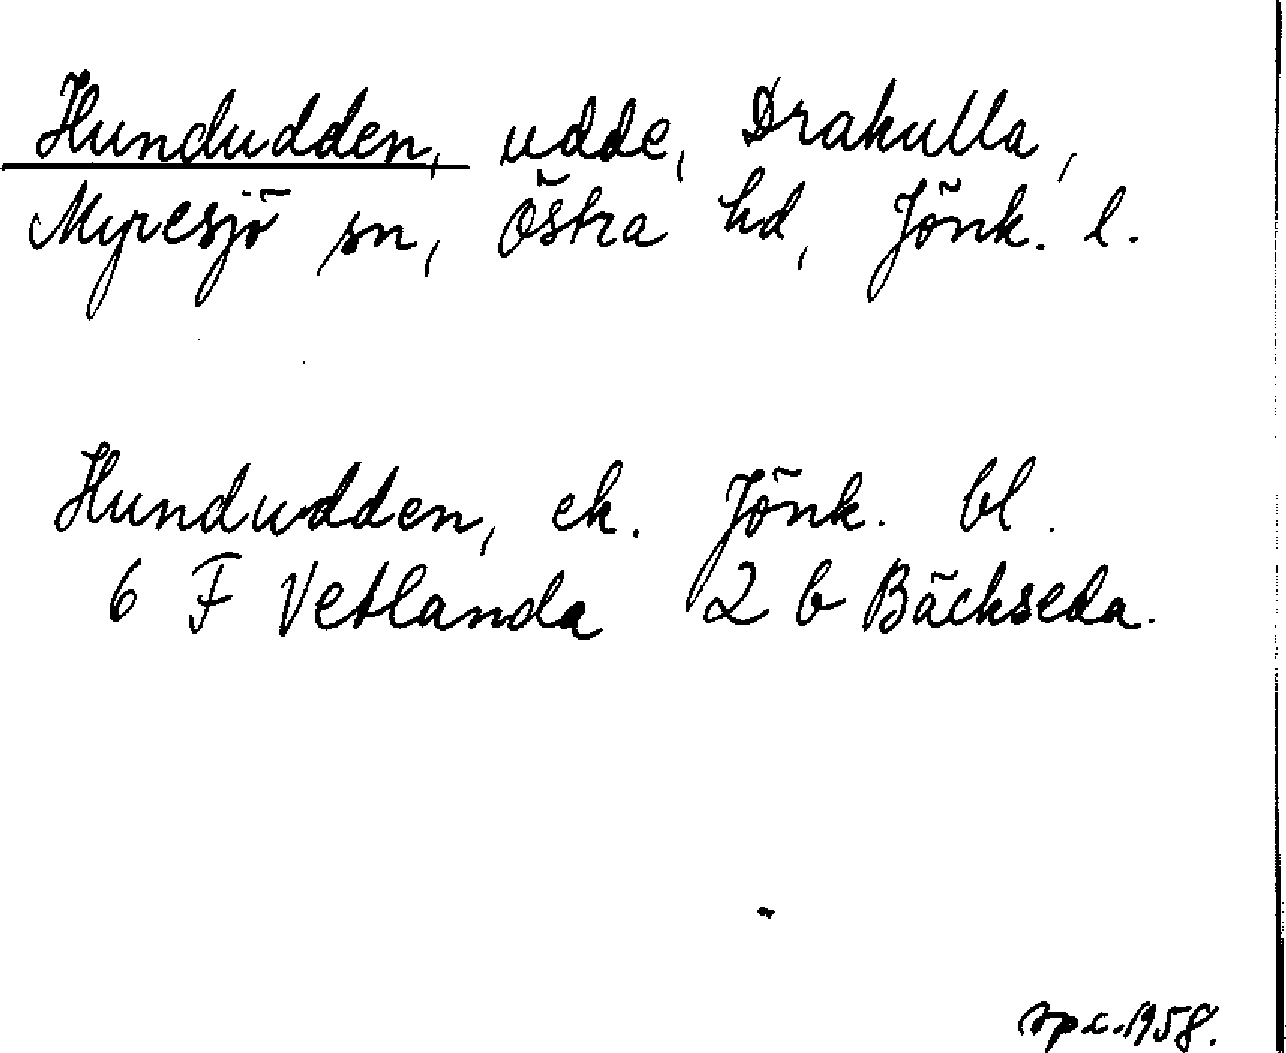 Hundudden, udde, Drakulla,
Myresjö sn, Östra hd, Jönk. l.
Hundudden, ek. Jönk. bl.
6 F Vetlanda 2 b Bäckseda.
spc. 1958.